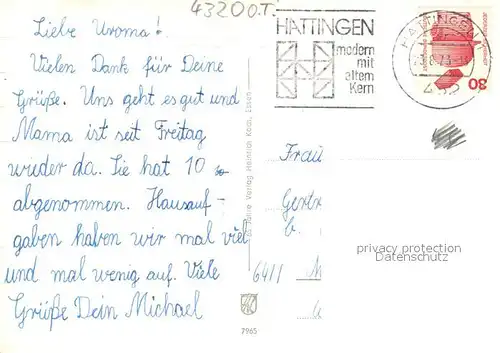 43200.T.
Liebe Uroma!
Vielen Dank für Deine
Grüße. Uns geht es gut und
Mama ist seit Freitag
wieder da. Sie hat 10
abgenommen. Hausauf-
gaben haben wir mal viel
und mal wenig auf. Viele
Grüße Dein Michael
HATTINGEN
modern
mit
altem
Kern
HATTINGEN 1
30
Frau
Gertr
privacy protection
Datenschutz
6411
7965